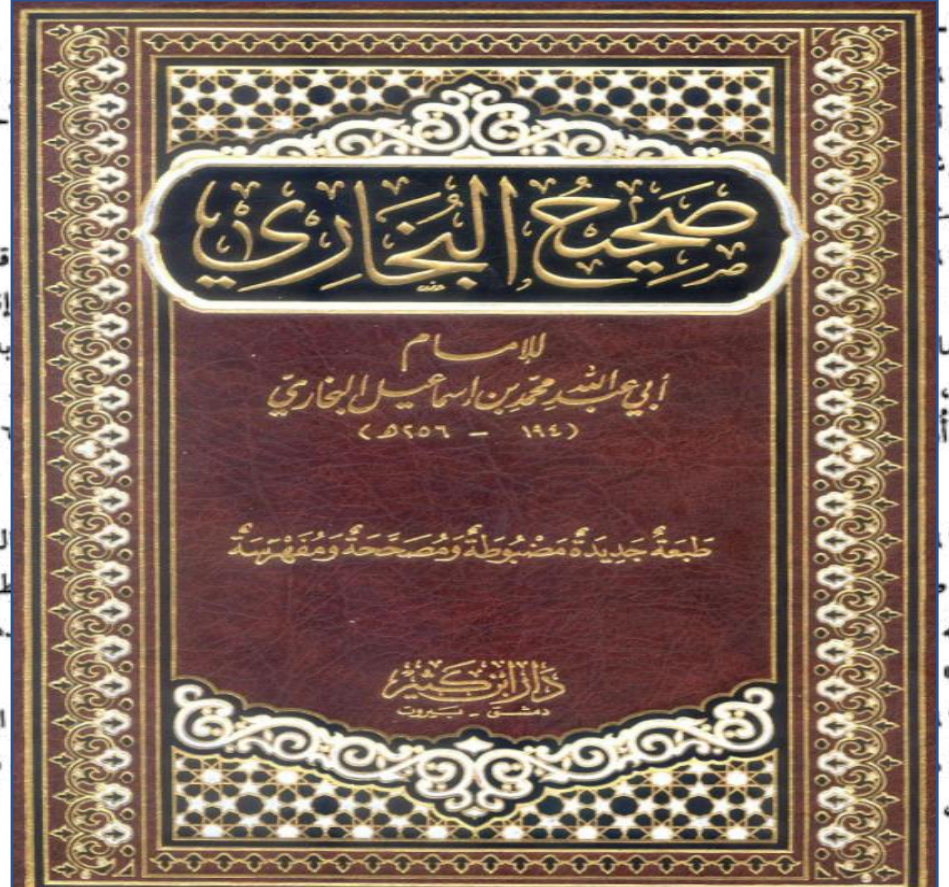 صَحِيحُ البُخَارِي
للإمام
أبي عبد الله محمد بن إسماعيل البخاريّ
(١٩٤ – ٢٥٦ھ)
طَبعَةٌ جَديدَةٌ مَضْبُوطَةٌ وَمُصَحَّحَةٌ وَمُفَهْرَسَةٌ
دَارُ ابْن كَثير
دمشق – بيروت